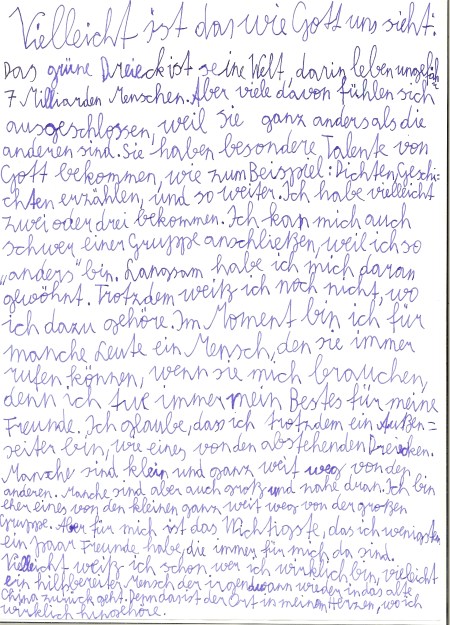 Vielleicht ist das wie Gott uns sieht:
Das grüne Dreieck ist seine Welt, darin leben ungefähr
7 Milliarden Menschen. Aber viele davon fühlen sich
ausgeschlossen, weil sie ganz anders als die
anderen sind. Sie haben besondere Talente von
Gott bekommen, wie zum Beispiel: Dichten, Geschi-
chten erzählen, und so weiter. Ich habe vielleicht
zwei oder drei bekommen. Ich kan mich auch
schwer einer Gruppe anschließen, weil ich so
„anders" bin. Langsam habe ich mich daran
gewöhnt. Trotzdem weiß ich noch nicht, wo
ich dazu gehöre. Im Moment bin ich für
manche Leute ein Mensch, den sie immer
rufen können, wenn sie mich brauchen,
denn ich tue immer mein Bestes für meine
Freunde. Ich glaube, das ich trotzdem ein Außen=
seiter bin, wie eines von den abstehenden Dreicken.
Manche sind klein und ganz weit weg von den
anderen. Manche sind aber auch groß und nahe dran. Ich bin
eher eines von den kleinen ganz weit weg von der großen
Gruppe. Aber für mich ist das Wichtigste, das ich wenigsten
ein paar Freunde habe, die immer für mich da sind.
Vielleicht weiß ich schon wer ich wirklich bin, vieleicht
ein hilfsbereiter Mensch der irgendwann wieder in das alte
China zurück geht. Denn das ist der Ort in meinem Herzen, wo ich
wirklich hingehöre.